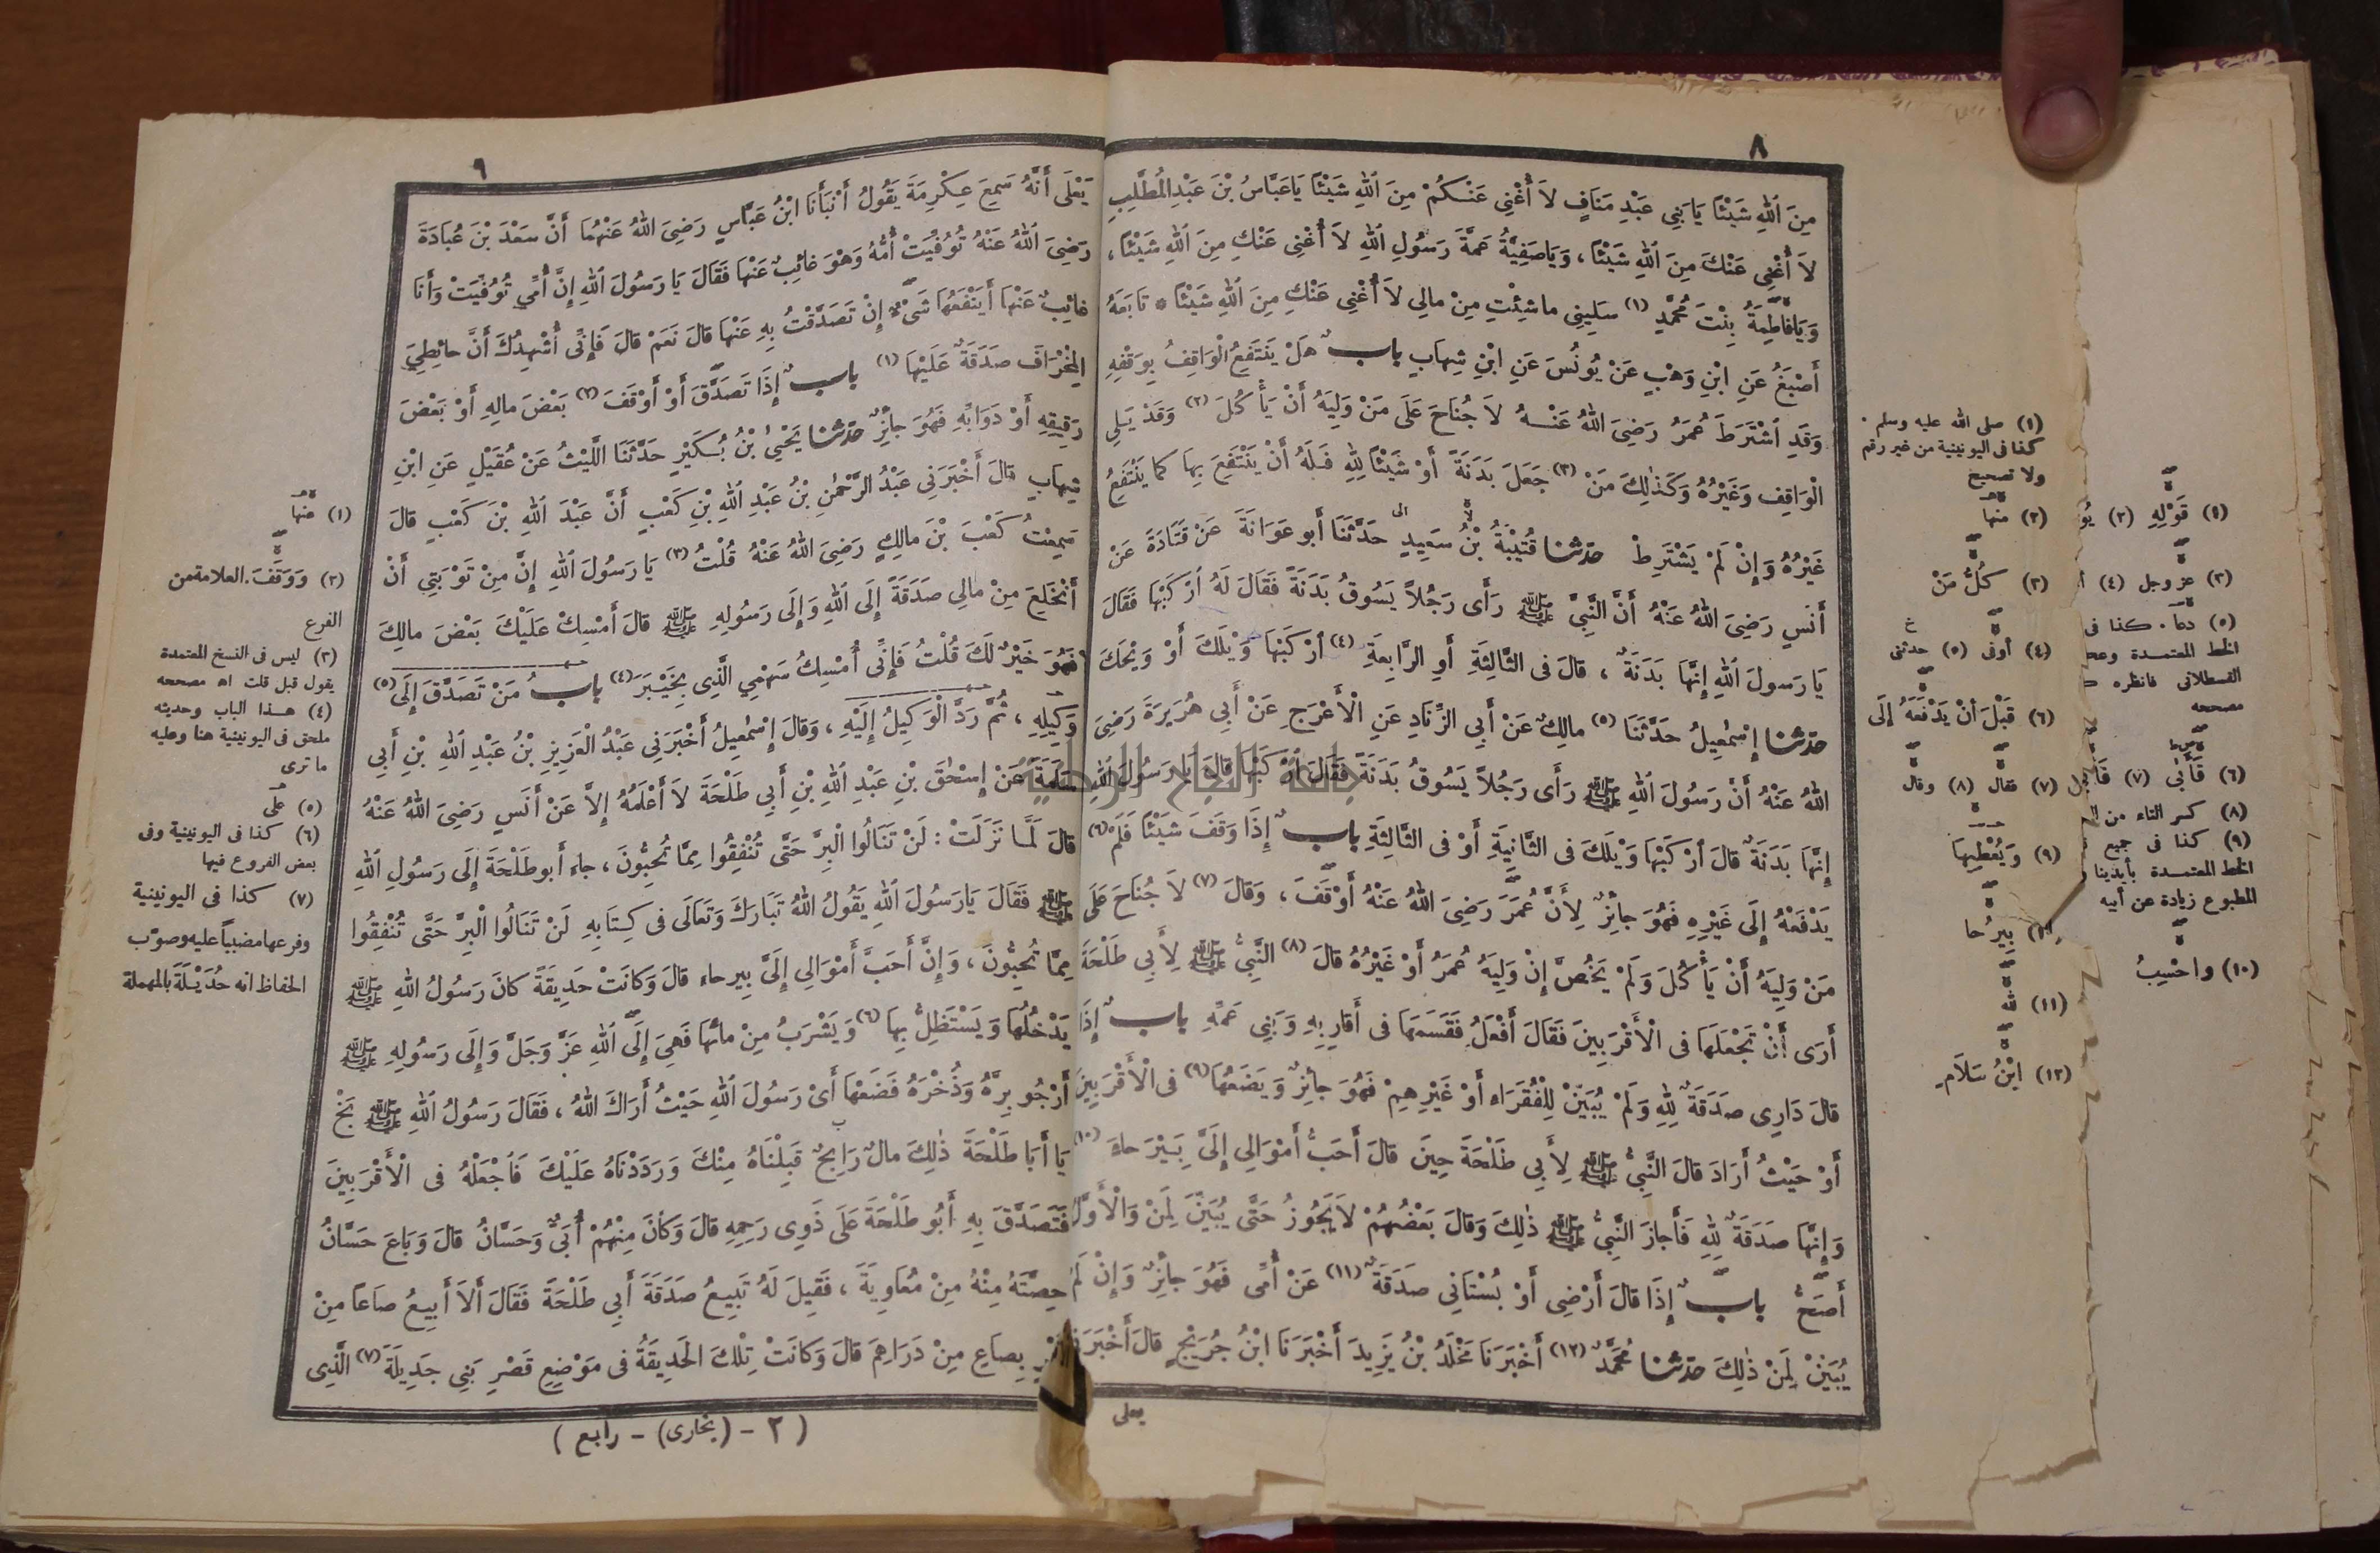 ٨
مِنَ اللهِ شَيْئًا يَا بَنِي عَبْدِ مَنَافٍ لَا أُغْنِى عَنْكُمْ مِنَ اللهِ شَيْئًا يَا عَبَّاسُ بْنَ عَبْدِ الْمُطَّلِبِ
لَا أُغْنِى عَنْكَ مِنَ اللهِ شَيْئًا ، وَيَا صَفِيَّةُ عَمَّةَ رَسُولِ اللهِ لَا أُغْنِى عَنْكِ مِنَ اللهِ شَيْئًا ،
وَيَا فَاطِمَةُ بِنْتَ مُحَمَّدٍ (١) سَلِينِى ما شِئْتِ مِنْ مالِى لَا أُغْنِى عَنْكِ مِنَ اللهِ شَيْئًا * تَابَعَهُ
أَصْبَغُ عَنِ ابْنِ وَهْبٍ عَنْ يُونُسَ عَنِ ابْنِ شِهَابٍ باب هَلْ يَنْتَفِعُ الْوَاقِفُ بِوَقْفِهِ
وَقَدِ اشْتَرَطَ عُمَرُ رَضِىَ اللهُ عَنْهُ لَا جُنَاحَ عَلَى مَنْ وَلِيَهُ أَنْ يَأْكُلَ (٢) وَقَدْ يَلِى
الْوَاقِفُ وَغَيْرُهُ وَكَذٰلِكَ مَنْ (٣) جَعَلَ بَدَنَةً أَوْ شَيْئًا لِلهِ فَلَهُ أَنْ يَنْتَفِعَ بِهَا كما يَنْتَفِعُ
غَيْرُهُ وَإِنْ لَمْ يَشْتَرِطْ حدثنا قُتَيْبَةُ بْنُ سَعِيدٍ حَدَّثَنَا أَبو عَوَانَةَ عَنْ قَتَادَةَ عَنْ
أَنَسٍ رَضِىَ اللهُ عَنْهُ أَنَّ النَّبِىَّ ﷺ رَأَى رَجُلاً يَسُوقُ بَدَنَةً فَقَالَ لَهُ ارْكَبْهَا فَقَالَ
يَا رَسولَ اللهِ إِنَّهَا بَدَنَةٌ ، قالَ فى الثَّالِثَةِ أَوِ الرَّابِعَةِ (٤) ارْكَبْهَا وَيْلَكَ أَوْ وَيْحَكَ
حدثنا إِسْمٰعِيلُ حَدَّثَنَا (٥) مالِكٌ عَنْ أَبِى الزِّنَادِ عَنِ الْأَعْرَجِ عَنْ أَبِى هُرَيرَةَ رَضِىَ
اللهُ عَنْهُ أَنَّ رَسُولَ اللهِ ﷺ رَأَى رَجُلاً يَسُوقُ بَدَنَةً فَقَالَ ارْكَبْهَا قالَ يا رَسُولَ اللهِ
إِنَّهَا بَدَنَةٌ قالَ ارْكَبْهَا وَيْلَكَ فى الثَّانِيَةِ أَوْ فى الثَّالِثَةِ باب إِذَا وَقَفَ شَيْئًا فَلَمْ (٦)
يَدْفَعْهُ إِلَى غَيْرِهِ فَهُوَ جائِزٌ لِأَنَّ عُمَرَ رَضِىَ اللهُ عَنْهُ أَوْقَفَ ، وَقالَ (٧) لَا جُنَاحَ عَلَى
مَنْ وَلِيَهُ أَنْ يَأْكُلَ وَلَمْ يَخُصَّ إِنْ وَلِيَهُ عُمَرُ أَوْ غَيْرُهُ قالَ (٨) النَّبِىُّ ﷺ لِأَبِى طَلْحَةَ
أَرَى أَنْ تَجْعَلَهَا فى الْأَقْرَبِينَ فَقَالَ أَفْعَلُ فَقَسَمَهَا فى أَقَارِبِهِ وَبَنِى عَمِّهِ باب إِذَا
قالَ دَارِى صَدَقَةٌ لِلهِ وَلَمْ يُبَيِّنْ لِلْفُقَرَاءِ أَوْ غَيْرِهِمْ فَهُوَ جائِزٌ وَيَضَعُهَا (٩) فى الْأَقْرَبِينَ
أَوْ حَيْثُ أَرَادَ قالَ النَّبِىُّ ﷺ لِأَبِى طَلْحَةَ حِينَ قالَ أَحَبُّ أَمْوَالِى إِلَىَّ بَيْرَحاءَ (١٠)
وَإِنَّهَا صَدَقَةٌ لِلهِ فَأَجازَ النَّبِىُّ ﷺ ذٰلِكَ وَقالَ بَعْضُهُمْ لَا يَجُوزُ حَتَّى يُبَيِّنَ لِمَنْ وَالْأَوَّلُ
أَصَحُّ باب إِذَا قالَ أَرْضِى أَوْ بُسْتَانِى صَدَقَةٌ (١١) عَنْ أُمِّى فَهُوَ جائِزٌ وَإِنْ لَمْ
يُبَيِّنْ لِمَنْ ذٰلِكَ حدثنا مُحَمَّدٌ (١٢) أَخْبَرَنَا مَخْلَدُ بْنُ يَزِيدَ أَخْبَرَنَا ابْنُ جُرَيْجٍ قالَ أَخْبَرَنِى
يعلى
(١) صلى الله عليه وسلم .
كذا فى اليونينية من غير رقم
ولا تصحيح
(٢) منها
(٣) كُلُّ مَنْ
(٤) أوفى (٥) حدثنى
(٦) قَبْلَ أَنْ يَدْفَعَهُ إلَى
(٧) فقال (٨) وقال
(٩) وَيُعْطِيهَا
(١٠) بِيرُحا
(١١) لله
(١٢) ابْنُ سَلَامٍ
(٤) قَوْلِهِ (٢)
(٣) عز وجل (٤)
(٥) دعا . كذا فى
الخط المعتمدة
القسطلانى فانظره
مصححه
(٦) فَأَبَى (٧)
(٨) كسر التاء من
(٩) كذا فى جميع
الخط المعتمدة بأيدينا
المطبوع زيادة عن أبيه
(١٠) واحْسِبُ
٩
يَعْلَى أَنَّهُ سَمِعَ عِكْرِمَةَ يَقُولُ أَنْبَأَنَا ابْنُ عَبَّاسٍ رَضِىَ اللهُ عَنْهُمَا أَنَّ سَعْدَ بْنَ عُبَادَةَ
رَضِىَ اللهُ عَنْهُ تُوُفِّيَتْ أُمُّهُ وَهْوَ غائِبٌ عَنْهَا فَقَالَ يَا رَسُولَ اللهِ إِنَّ أُمِّى تُوُفِّيَتْ وَأَنَا
غائِبٌ عَنْهَا أَيَنْفَعُهَا شَىْءٌ إِنْ تَصَدَّقْتُ بِهِ عَنْهَا قالَ نَعَمْ قالَ فَإِنِّى أُشْهِدُكَ أَنَّ حائِطِىَ
الْمِخْرَافَ صَدَقَةٌ عَلَيْهَا (١) باب إِذَا تَصَدَّقَ أَوْ أَوْقَفَ (٢) بَعْضَ مالِهِ أَوْ بَعْضَ
رَقِيقِهِ أَوْ دَوَابِّهِ فَهُوَ جائِزٌ حدثنا يَحْيَىٰ بْنُ بُكَيْرٍ حَدَّثَنَا اللَّيْثُ عَنْ عُقَيْلٍ عَنِ ابْنِ
شِهَابٍ قالَ أَخْبَرَنِى عَبْدُ الرَّحْمٰنِ بْنُ عَبْدِ اللهِ بْنِ كَعْبٍ أَنَّ عَبْدَ اللهِ بْنَ كَعْبٍ قالَ
سَمِعْتُ كَعْبَ بْنَ مالِكٍ رَضِىَ اللهُ عَنْهُ قُلْتُ (٣) يَا رَسُولَ اللهِ إِنَّ مِنْ تَوْبَتِى أَنْ
أَنْخَلِعَ مِنْ مالِى صَدَقَةً إِلَى اللهِ وَإِلَى رَسُولِهِ ﷺ قالَ أَمْسِكْ عَلَيْكَ بَعْضَ مالِكَ
فَهُوَ خَيْرٌ لَكَ قُلْتُ فَإِنِّى أُمْسِكُ سَهْمِى الَّذِى بِخَيْبَرَ (٤) باب مَنْ تَصَدَّقَ إِلَى (٥)
وَكِيلِهِ ، ثُمَّ رَدَّ الْوَكِيلُ إِلَيْهِ ، وَقالَ إِسْمٰعِيلُ أَخْبَرَنِى عَبْدُ الْعَزِيزِ بْنُ عَبْدِ اللهِ بْنِ أَبِى
سَلَمَةَ عَنْ إِسْحٰقَ بْنِ عَبْدِ اللهِ بْنِ أَبِى طَلْحَةَ لَا أَعْلَمُهُ إِلَّا عَنْ أَنَسٍ رَضِىَ اللهُ عَنْهُ
قالَ لَمَّا نَزَلَتْ : لَنْ تَنَالُوا الْبِرَّ حَتَّى تُنْفِقُوا مِمَّا تُحِبُّونَ ، جاء أَبو طَلْحَةَ إِلَى رَسُولِ اللهِ
ﷺ فَقَالَ يَا رَسُولَ اللهِ يَقُولُ اللهُ تَبَارَكَ وَتَعَالَى فى كِتَابِهِ لَنْ تَنَالُوا الْبِرَّ حَتَّى تُنْفِقُوا
مِمَّا تُحِبُّونَ ، وَإِنَّ أَحَبَّ أَمْوَالِى إِلَىَّ بِيرحاء قالَ وَكانَتْ حَدِيقَةً كانَ رَسُولُ اللهِ ﷺ
يَدْخُلُهَا وَيَسْتَظِلُّ بِهَا (٦) وَيَشْرَبُ مِنْ مائِهَا فَهِىَ إِلَى اللهِ عَزَّ وَجَلَّ وَإِلَى رَسُولِهِ ﷺ
أَرْجُو بِرَّهُ وَذُخْرَهُ فَضَعْهَا أَىْ رَسُولَ اللهِ حَيْثُ أَرَاكَ اللهُ ، فَقَالَ رَسُولُ اللهِ ﷺ بَخْ
يَا أَبَا طَلْحَةَ ذٰلِكَ مالٌ رَابِحٌ قَبِلْنَاهُ مِنْكَ وَرَدَدْنَاهُ عَلَيْكَ فَاجْعَلْهُ فى الْأَقْرَبِينَ
فَتَصَدَّقَ بِهِ أَبُو طَلْحَةَ عَلَى ذَوِى رَحِمِهِ قالَ وَكانَ مِنْهُمْ أُبَىٌّ وَحَسَّانُ قالَ وَبَاعَ حَسَّانُ
حِصَّتَهُ مِنْهُ مِنْ مُعَاوِيَةَ ، فَقِيلَ لَهُ تَبِيعُ صَدَقَةَ أَبِى طَلْحَةَ فَقَالَ أَلَا أَبِيعُ صَاعًا مِنْ
تَمْرٍ بِصاعٍ مِنْ دَرَاهِمَ قالَ وَكانَتْ تِلْكَ الحَدِيقَةُ فى مَوْضِعِ قَصْرِ بَنِى جَدِيلَةَ (٧) الَّذِى
( ٢ - (بخارى) - رابع )
(١) عنها
(٢) وَوَقَفَ . العلامة من
الفرع
(٣) ليس فى النسخ المعتمدة
يقول قبل قلت اه مصححه
(٤) هذا الباب وحديثه
ملحق فى اليونينية هنا وعليه
ما ترى
(٥) عَلَى
(٦) كذا فى اليونينية وفى
بعض الفروع فيها
(٧) كذا فى اليونينية
وفرعها مضبباً عليه وصوّب
الحفاظ انه حُدَيْلَةَ بالمهملة
جامعة النجاح الوطنية